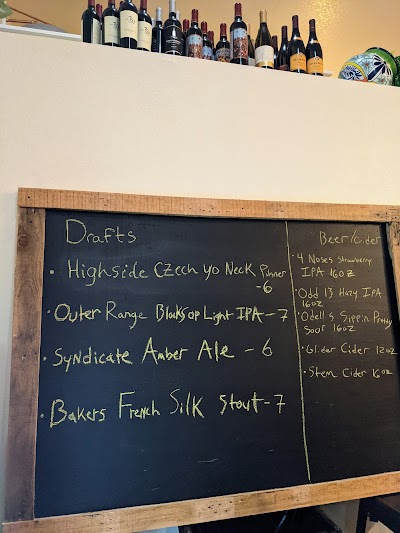 Drafts
• Highside Czech yo Neck Pilsner
-6
• Outer Range Blocks op Light IPA - 7
• Syndicate Amber Ale - 6
• Bakers French Silk Stout - 7
Beer/Cider
• 4 Noses Strawberry
IPA 16oz
• Odd 13 Hazy IPA
16oz
• Odell's Sippin Pretty
Sour 16oz
• Glider Cider 12oz
• Stem Cider 16oz